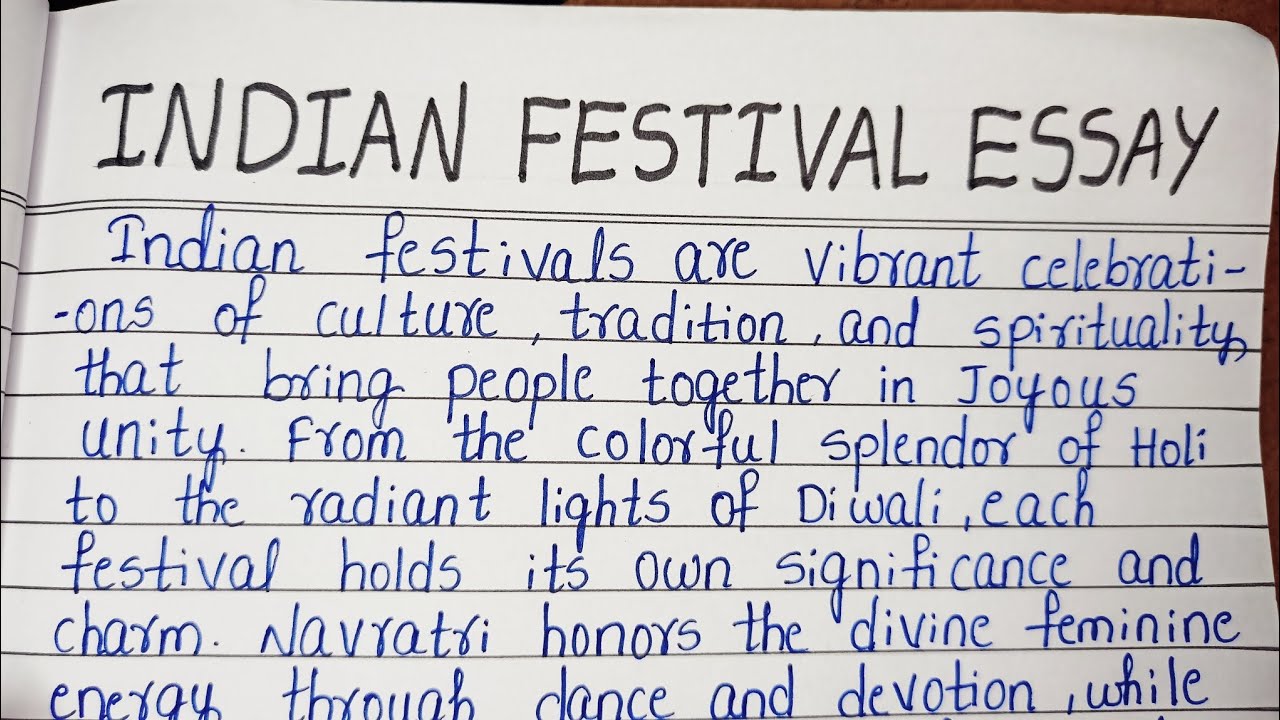 INDIAN FESTIVAL ESSAY
Indian festivals are vibrant celebrati-
-ons of culture, tradition, and spirituality
that bring people together in Joyous
unity. From the colorful splendor of Holi
to the radiant lights of Diwali, each
festival holds its own significance and
charm. Navratri honors the divine feminine
energy through dance and devotion, while